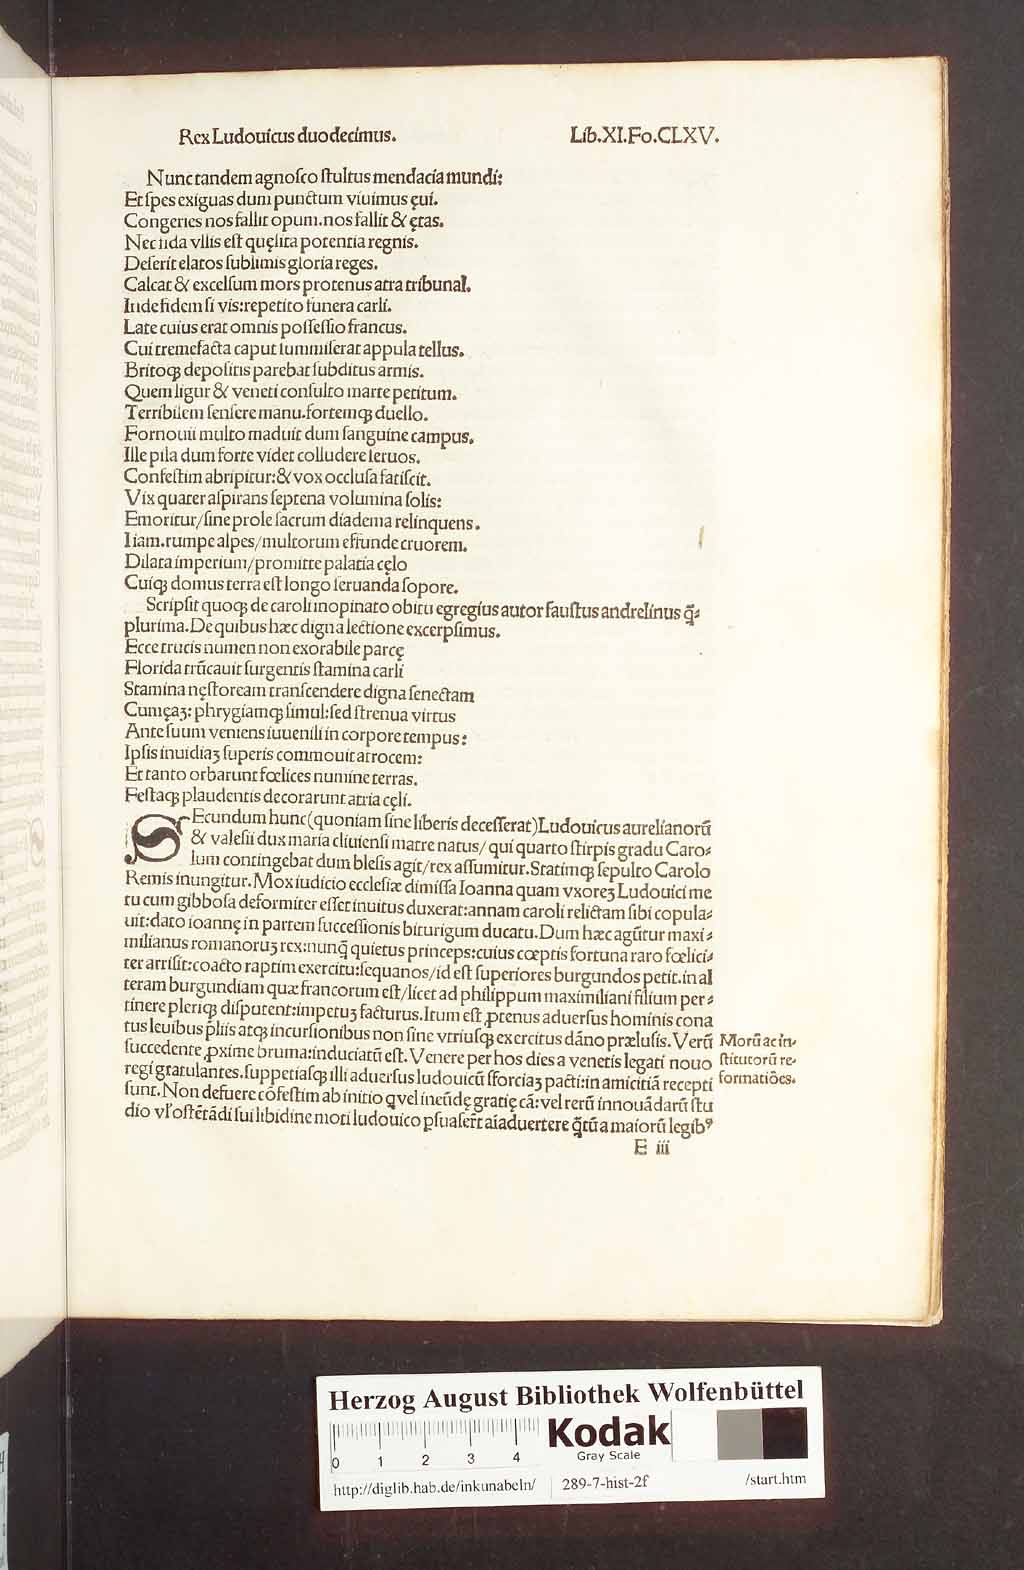 Rex Ludouicus duodecimus. Lib.XI.Fo.CLXV.
Nunc tandem agnosco stultus mendacia mundi:
Et spes exiguas dum punctum viuimus ęui.
Congeries nos fallit opum.nos fallit & ętas.
Nec fida vllis est quęsita potentia regnis.
Deserit elatos sublimis gloria reges.
Calcat & excelsum mors protenus atra tribunal.
Inde fidem si vis:repetito funera carli.
Late cuius erat omnis possessio francus.
Cui tremefacta caput summiserat appula tellus.
Britoqꝫ depositis parebat subditus armis.
Quem ligur & veneti consulto marte petitum.
Terribilem sensere manu.fortemqꝫ duello.
Fornouii multo maduit dum sanguine campus.
Ille pila dum forte videt colludere seruos.
Confestim abripitur:& vox occlusa fatiscit.
Vix quater aspirans septena volumina solis:
Emoritur/sine prole sacrum diadema relinquens.
I iam.rumpe alpes/multorum effunde cruorem.
Dilata imperium/promitte palatia cęlo
Cuiqꝫ domus terra est longo seruanda sopore.
Scripsit quoqꝫ de caroli inopinato obitu egregius autor faustus andrelinus q̄⸗
plurima.De quibus hæc digna lectione excerpsimus.
Ecce trucis numen non exorabile parcę
Florida trūcauit surgentis stamina carli
Stamina nęstoream transcendere digna senectam
Cumęaꝫ: phrygiamqꝫ simul:sed strenua virtus
Ante suum veniens iuuenili in corpore tempus:
Ipsis inuidiaꝫ superis commouit atrocem:
Et tanto orbarunt fœlices numine terras.
Festaqꝫ plaudentis decorarunt atria cęli.
SEcundum hunc(quoniam sine liberis decesserat)Ludouicus aurelianorū
& valesii dux maria cliuiensi matre natus/ qui quarto stirpis gradu Caro⸗
lum contingebat dum blesis agit/rex assumitur.Statimqꝫ sepulto Carolo
Remis inungitur.Mox iudicio ecclesiæ dimissa Ioanna quam vxoreꝫ Ludouici me
tu cum gibbosa deformiter esset inuitus duxerat:annam caroli relictam sibi copula⸗
uit:dato ioannę in partem successionis biturigum ducatu.Dum hæc agūtur maxi⸗
milianus romanoruꝫ rex:nunq̄ quietus princeps:cuius cœptis fortuna raro fœlici⸗
ter arrisit:coacto raptim exercitu:sequanos/id est superiores burgundos petit.in al
teram burgundiam quæ francorum est/licet ad philippum maximiliani filium per⸗
tinere pleriqꝫ disputent:impetuꝫ facturus.Itum est ꝓtenus aduersus hominis cona
tus leuibus p̄liis atqꝫ incursionibus non sine vtriusqꝫ exercitus dāno prælusis.Verū
succedente ꝓxime bruma:induciatū est.Venere per hos dies a venetis legati nouo
regi gratulantes.suppetiasqꝫ illi aduersus ludouicū sforciaꝫ pacti:in amicitiā recepti
sunt.Non defuere cōfestim ab initio q vel ineūdę gratię cā:vel rerū innouādarū stu
dio vl̓ ostētādi sui libidine moti ludouico ꝑsuaser̄t aīaduertere q̄tū a maiorū legibꝰ
Morū ac in⸗
stitutorū re⸗
formatiōes.
E iii
Herzog August Bibliothek Wolfenbüttel
0 1 2 3 4
Kodak
Gray Scale
http://diglib.hab.de/inkunabeln/ 289-7-hist-2f /start.htm